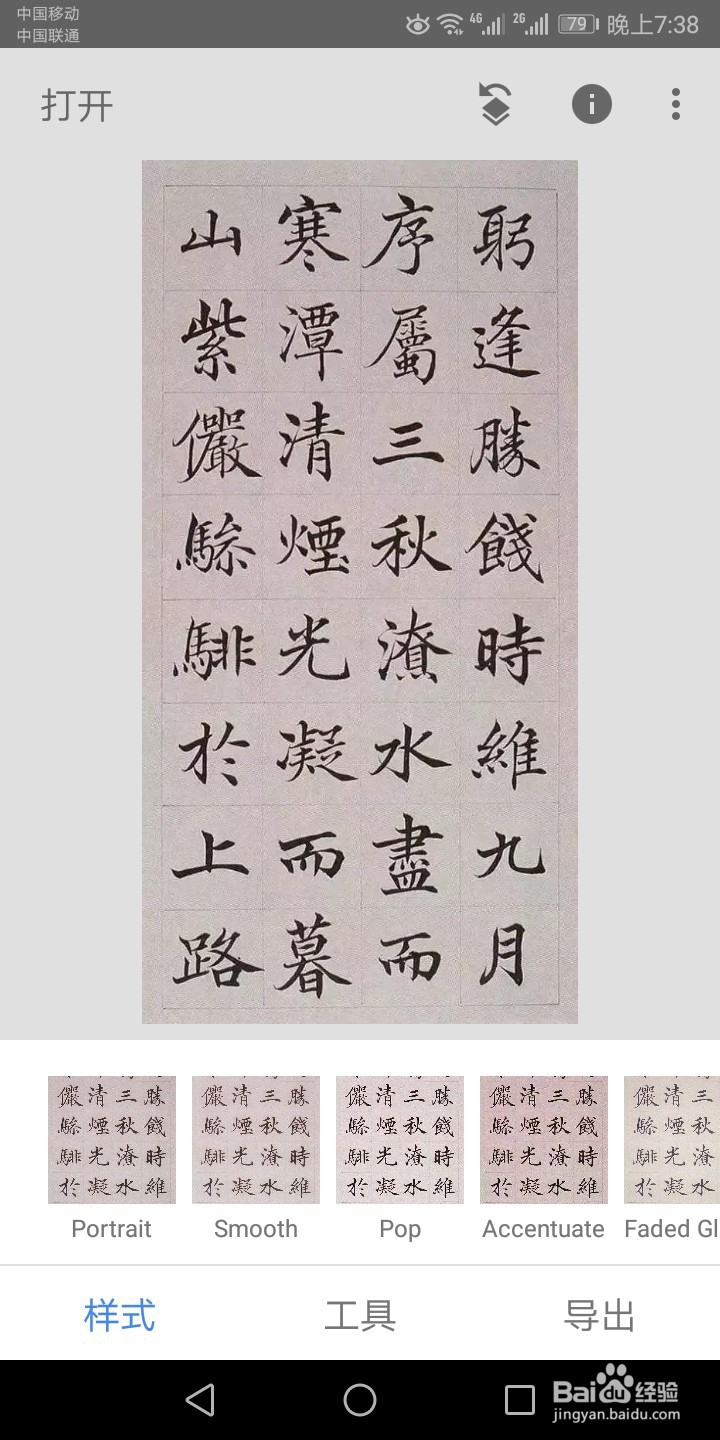 中国移动
中国联通
4G 2G 79 晚上7:38
打开
躬逢勝餞時維九月
序屬三秋潦水盡而
寒潭清煙光凝而暮
山紫儼驂騑於上路
Portrait
Smooth
Pop
Accentuate
Faded Gl
样式
工具
导出
Baidu经验
jingyan.baidu.com